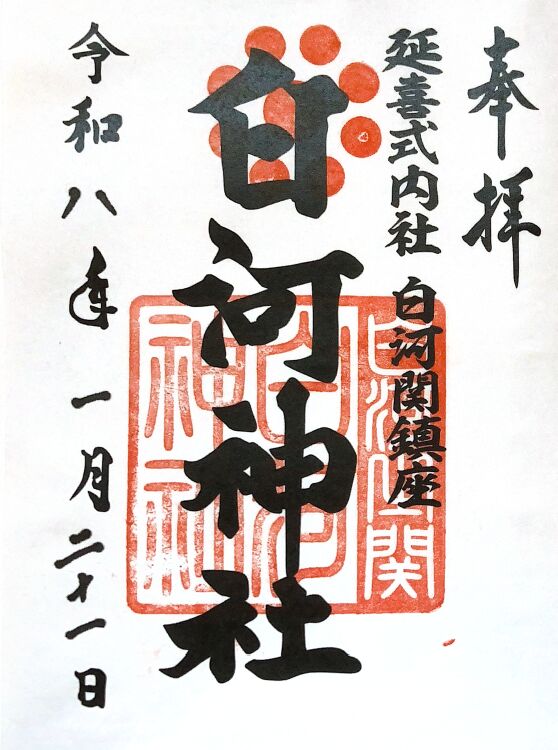 奉拝
延喜式内社 白河関鎮座
白河神社
令和八年一月二十一日